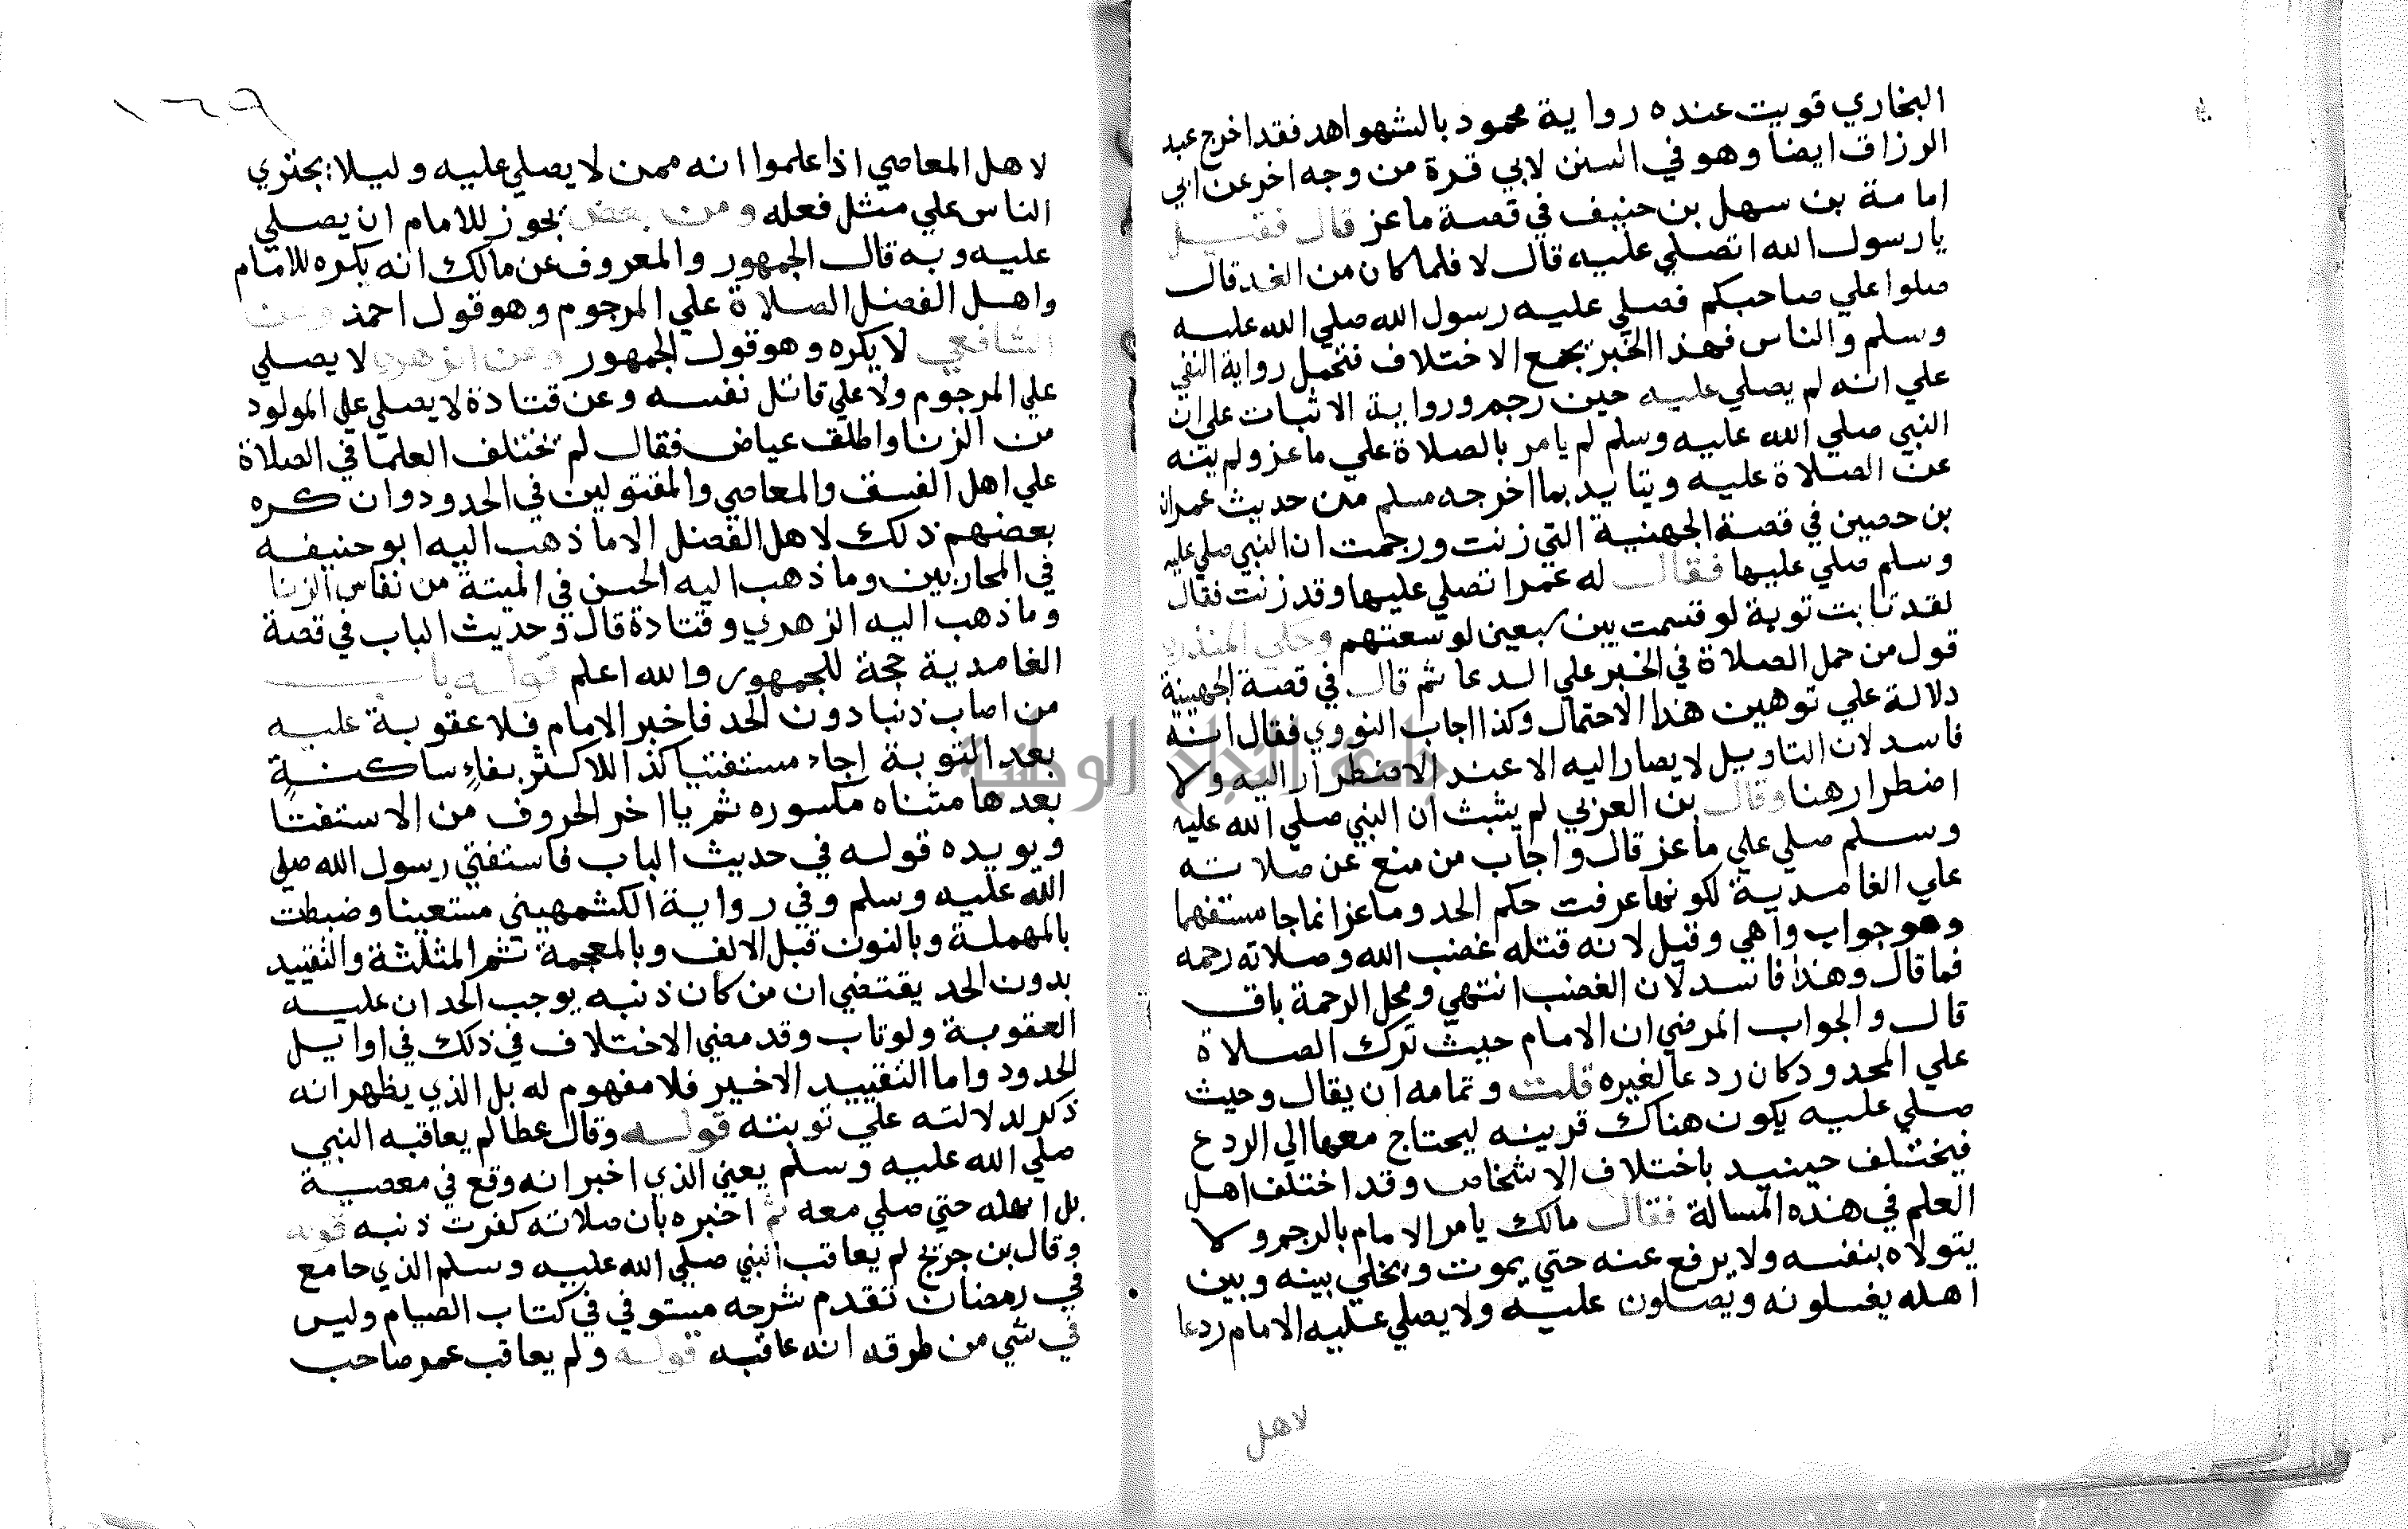 البخاري قويت عنده رواية محمود بالشهواهد فقد اخرج عبد
الرزاق ايضا وهو في السنن لابي قرة من وجه اخر عن ابي
امامة بن سهل بن حنيف في قصة ماعز قال فقيل
يا رسول الله اتصلي عليه قال لا فلما كان من الغد قال
صلوا علي صاحبكم فصلي عليه رسول الله صلي الله عليه
وسلم والناس فهذا الخبر يجمع الاختلاف فتحمل رواية النفي
علي انه لم يصلي عليه حين رجم ورواية الاثبات علي ان
النبي صلي الله عليه وسلم لم يامر بالصلاة علي ماعز ولم ينه
عن الصلاة عليه ويتايد بما اخرجه مسلم من حديث عمران
بن حصين في قصة الجهنية التي زنت ورجمت ان النبي صلي عليه
وسلم صلي عليها فقال له عمر اتصلي عليها وقد زنت فقال
لقد تابت توبة لو قسمت بين سبعين لوسعتهم وحكي المنذري
قول من حمل الصلاة في الخبر علي الدعا ثم قال في قصة الجهينة
دلالة علي توهين هذا الاحتمال وكذا اجاب النووي فقال انه
فاسد لان التاويل لا يصار اليه الا عند الاضطرار اليه ولا
اضطرار هنا وقال بن العزبي لم يثبث ان النبي صلي الله عليه
وسلم صلي علي ماعز قال واجاب من منع عن صلاته
علي الغامدية لكونها عرفت حكم الحد وماعز انما جا مستفهما
وهو جواب واهي وقيل لانه قتله غضب الله وصلاته رحمه
فما قال وهذا فاسد لان الغضب انتهي ومحل الرحمة باق
قال والجواب المرضي ان الامام حيث ترك الصلاة
علي المحدود كان ردعا لغيره قلت وتمامه ان يقال وحيث
صلي عليه يكون هناك قرينه ليحتاج معها الي الردع
فيختلف حينيد باختلاف الاشخاص وقد اختلف اهل
العلم في هذه المسالة فقال مالك يامر الامام بالرجم ولا
يتولاه بنفسه ولا يرفع عنه حتي يموت ويخلي بينه وبين
اهله يغسلونه ويصلون عليه ولا يصلي عليه الامام ردعا
لاهل
١٦٩
لاهل المعاصي اذا علموا انه ممن لا يصلي عليه وليلا يجتري
الناس علي مثل فعله وعن بعض يجوز للامام ان يصلي
عليه وبه قال الجمهور والمعروف عن مالك انه يكره للامام
واهل الفضل الصلاة علي المرجوم وهو قول احمد وعن
الشافعي لا يكره وهو قول الجمهور وعن الزهري لا يصلي
علي المرجوم ولا علي قاتل نفسه وعن قتادة لا يصلي علي المولود
من الزنا واطلق عياض فقال لم تختلف العلما في الصلاة
علي اهل الفسق والمعاصي والمقتولين في الحدود وان كره
بعضهم ذلك لاهل الفضل الا ما ذهب اليه ابو حنيفه
في المحاربين وما ذهب اليه الحسن في الميتة من نفاس الزنا
وما ذهب اليه الزهري وقتادة قال وحديث الباب في قصة
الغامدية حجة للجمهور والله اعلم قوله باب
من اصاب ذنبا دون الحد فاخبر الامام فلا عقوبة عليه
بعد التوبة اجاء مستفتيا كذا للاكثر بفاء ساكنة
بعدها مثناه مكسوره ثم يا اخر الحروف من الاستفتا
ويويده قوله في حديث الباب فاستفتي رسول الله صلي
الله عليه وسلم وفي رواية الكشمهيني مستعينا وضبطت
بالمهملة وبالنون قبل الالف وبالمعجمة ثم المثلثة والتقييد
بدون الحد يقتضي ان من كان ذنبه يوجب الحد ان عليه
العقوبة ولو تاب وقد مضي الاختلاف في ذلك في اوايل
الحدود واما التقييد الاخير فلا مفهوم له بل الذي يظهر انه
ذكر لدلالته علي توبته قوله وقال عطا لم يعاقبه النبي
صلي الله عليه وسلم يعني الذي اخبر انه وقع في معصية
بل امهله حتي صلي معه ثم اخبره بان صلاته كفرت ذنبه قوله
وقال بن جريج لم يعاقب النبي صلي الله عليه وسلم الذي جامع
في رمضان تقدم شرحه مستوفي في كتاب الصيام وليس
في شي من طرقه انه عاقبه قوله ولم يعاقب عمر صاحب
جامعة النجاح الوطنية